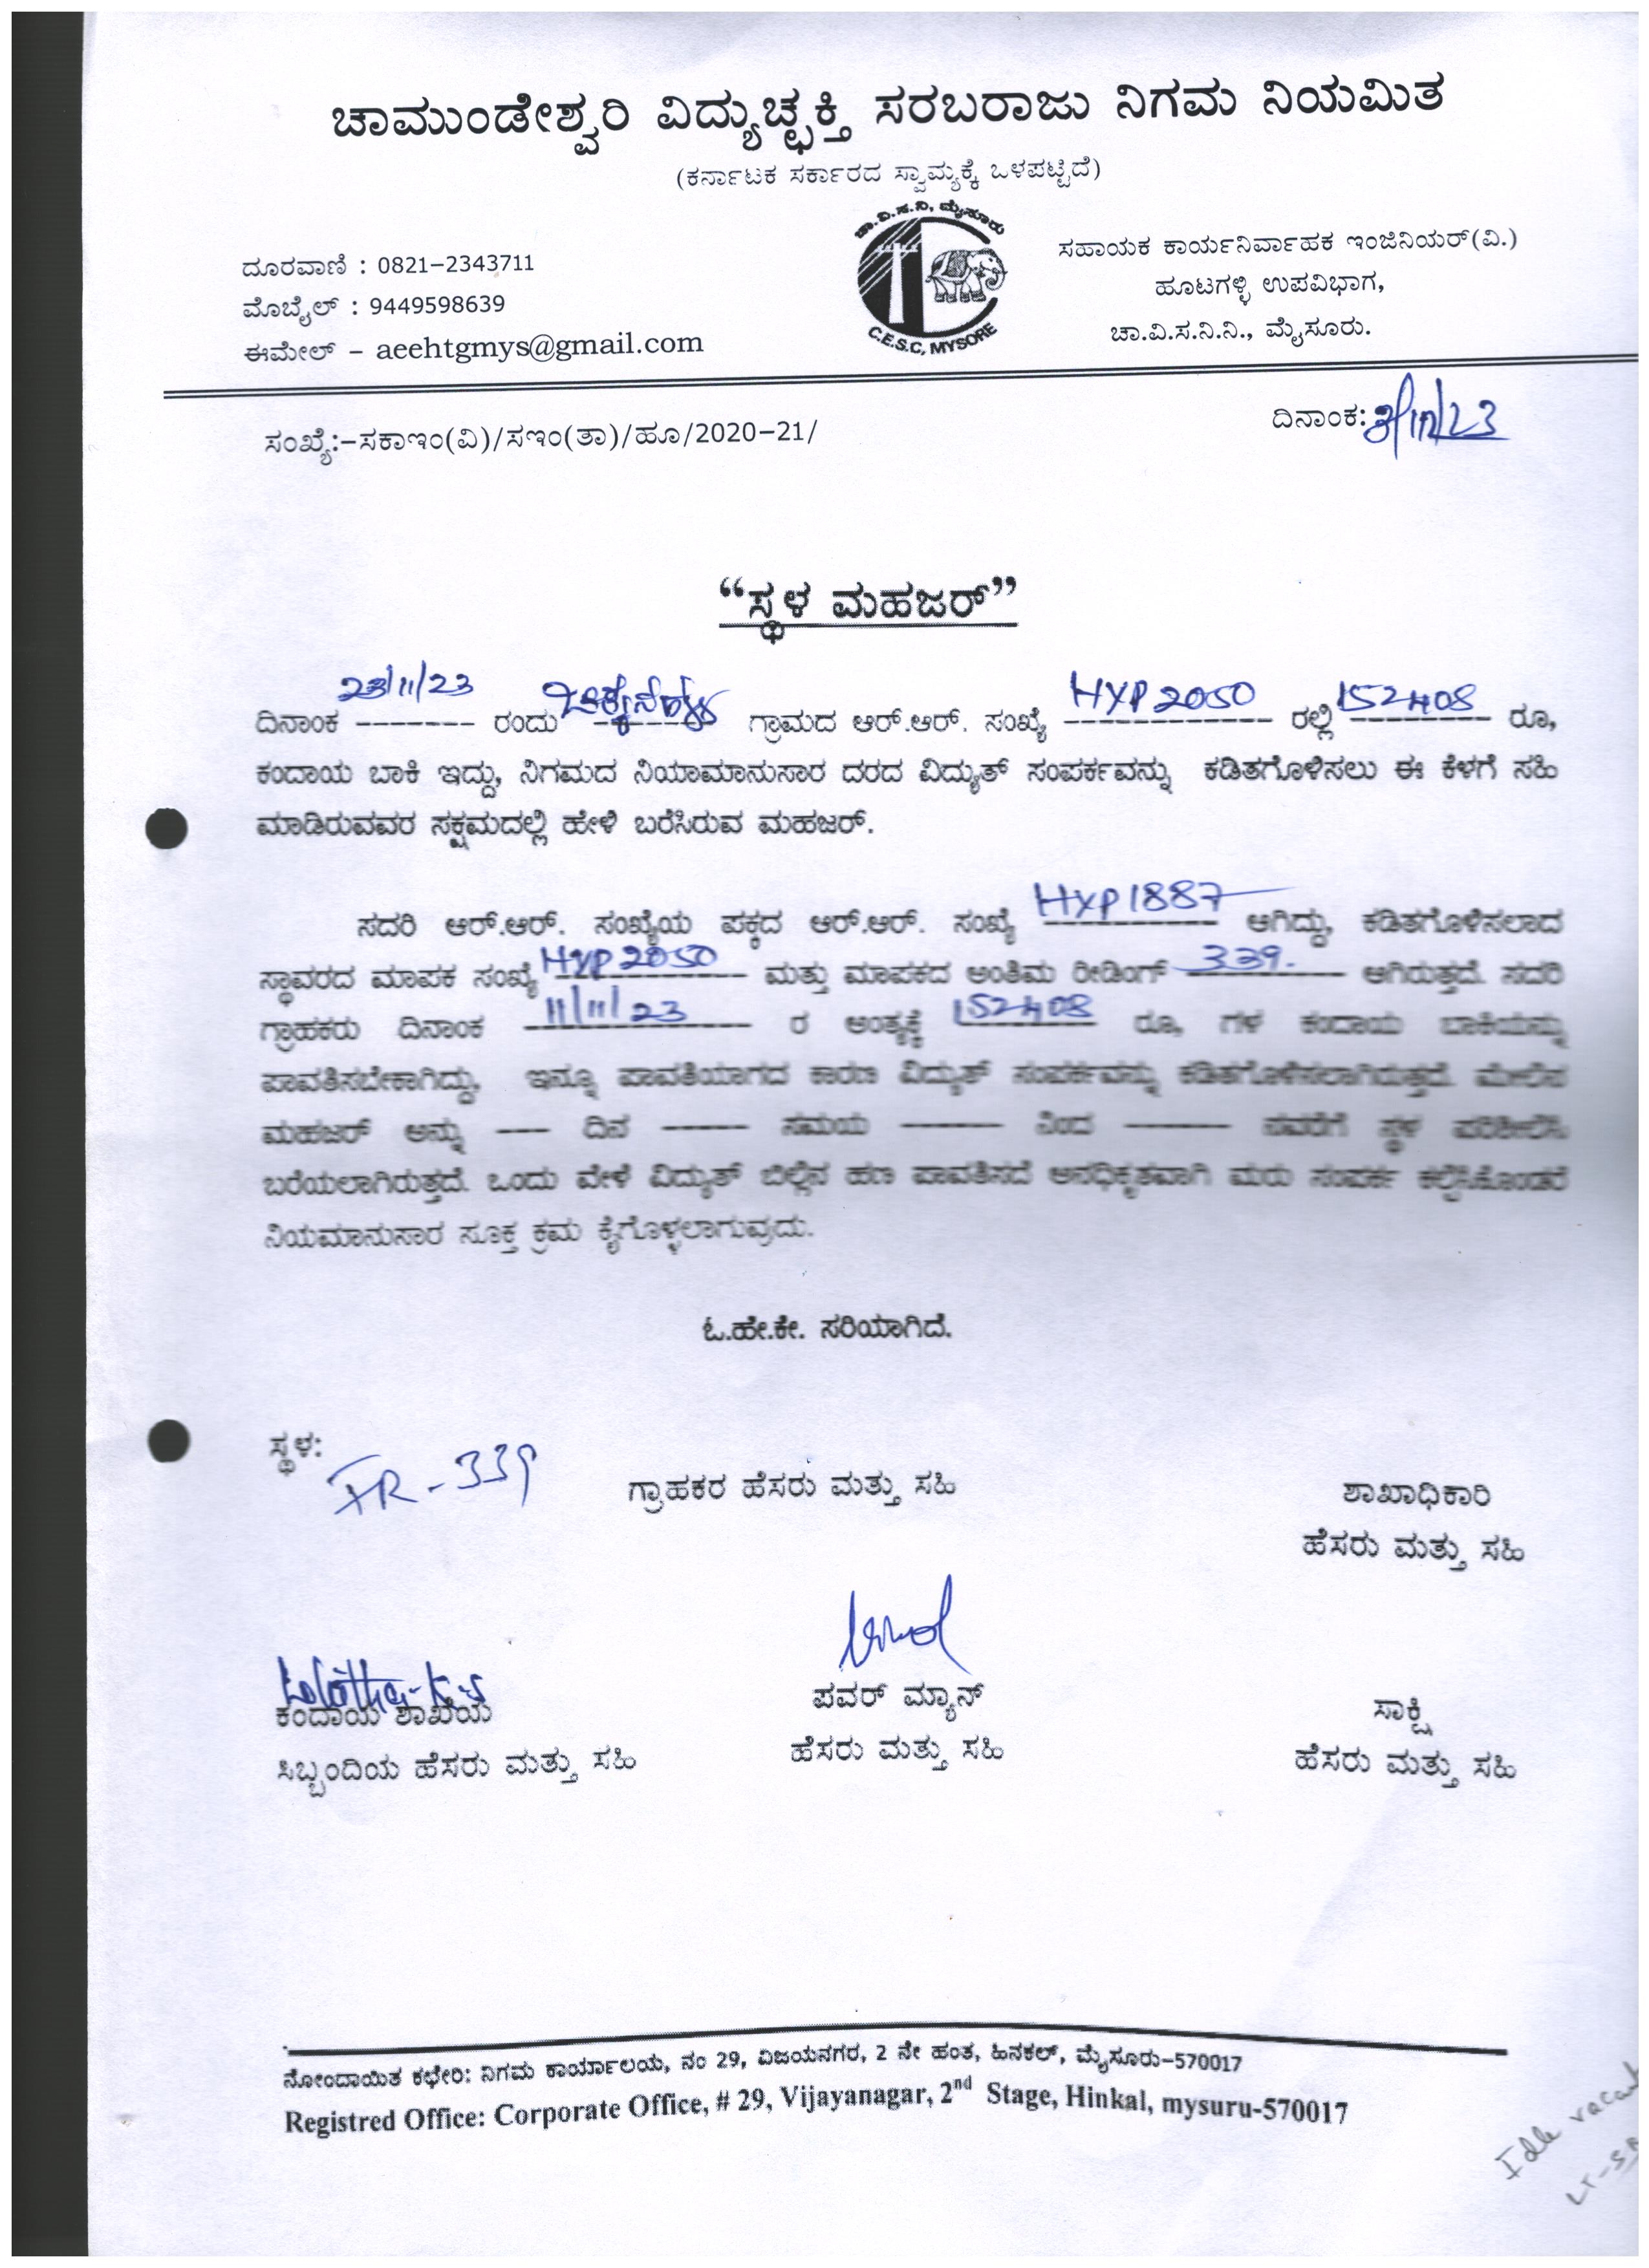 ಚಾಮುಂಡೇಶ್ವರಿ ವಿದ್ಯುಚ್ಛಕ್ತಿ ಸರಬರಾಜು ನಿಗಮ ನಿಯಮಿತ
(ಕರ್ನಾಟಕ ಸರ್ಕಾರದ ಸ್ವಾಮ್ಯಕ್ಕೆ ಒಳಪಟ್ಟಿದೆ)
ಚಾ.ವಿ.ಸ.ನಿ, ಮೈಸೂರು
C.E.S.C, MYSORE
ದೂರವಾಣಿ : 0821-2343711
ಮೊಬೈಲ್ : 9449598639
ಈಮೇಲ್ - aeehtgmys@gmail.com
ಸಹಾಯಕ ಕಾರ್ಯನಿರ್ವಾಹಕ ಇಂಜಿನಿಯರ್(ವಿ.)
ಹೂಟಗಳ್ಳಿ ಉಪವಿಭಾಗ,
ಚಾ.ವಿ.ಸ.ನಿ.ನಿ., ಮೈಸೂರು.
ಸಂಖ್ಯೆ:-ಸಕಾಇಂ(ವಿ)/ಸಇಂ(ತಾ)/ಹೂ/2020-21/
ದಿನಾಂಕ:
“ಸ್ಥಳ ಮಹಜರ್”
ದಿನಾಂಕ 23/11/23 ರಂದು ಗ್ರಾಮದ ಆರ್.ಆರ್. ಸಂಖ್ಯೆ HYP 2050 ರಲ್ಲಿ 152408 ರೂ,
ಕಂದಾಯ ಬಾಕಿ ಇದ್ದು, ನಿಗಮದ ನಿಯಾಮಾನುಸಾರ ದರದ ವಿದ್ಯುತ್ ಸಂಪರ್ಕವನ್ನು ಕಡಿತಗೊಳಿಸಲು ಈ ಕೆಳಗೆ ಸಹಿ
ಮಾಡಿರುವವರ ಸಕ್ಷಮದಲ್ಲಿ ಹೇಳಿ ಬರೆಸಿರುವ ಮಹಜರ್.
ಸದರಿ ಆರ್.ಆರ್. ಸಂಖ್ಯೆಯ ಪಕ್ಕದ ಆರ್.ಆರ್. ಸಂಖ್ಯೆ HYP 1887 ಆಗಿದ್ದು, ಕಡಿತಗೊಳಿಸಲಾದ
ಸ್ಥಾವರದ ಮಾಪಕ ಸಂಖ್ಯೆ HYP 2050 ಮತ್ತು ಮಾಪಕದ ಅಂತಿಮ ರೀಡಿಂಗ್ 339. ಆಗಿರುತ್ತದೆ. ಸದರಿ
ಗ್ರಾಹಕರು ದಿನಾಂಕ 11/11/23 ರ ಅಂತ್ಯಕ್ಕೆ 152408 ರೂ, ಗಳ ಕಂದಾಯ ಬಾಕಿಯನ್ನು
ಪಾವತಿಸಬೇಕಾಗಿದ್ದು, ಇನ್ನೂ ಪಾವತಿಯಾಗದ ಕಾರಣ ವಿದ್ಯುತ್ ಸಂಪರ್ಕವನ್ನು ಕಡಿತಗೊಳಿಸಲಾಗಿರುತ್ತದೆ. ಮೇಲಿನ
ಮಹಜರ್ ಅನ್ನು --- ದಿನ ----- ಸಮಯ ------ ನಿಂದ ------ ನವರೆಗೆ ಸ್ಥಳ ಪರಿಶೀಲಿಸಿ
ಬರೆಯಲಾಗಿರುತ್ತದೆ. ಒಂದು ವೇಳೆ ವಿದ್ಯುತ್ ಬಿಲ್ಲಿನ ಹಣ ಪಾವತಿಸದೆ ಅನಧಿಕೃತವಾಗಿ ಮರು ಸಂಪರ್ಕ ಕಲ್ಪಿಸಿಕೊಂಡರೆ
ನಿಯಮಾನುಸಾರ ಸೂಕ್ತ ಕ್ರಮ ಕೈಗೊಳ್ಳಲಾಗುವುದು.
ಓ.ಹೇ.ಕೇ. ಸರಿಯಾಗಿದೆ.
ಸ್ಥಳ:
FR-339
ಗ್ರಾಹಕರ ಹೆಸರು ಮತ್ತು ಸಹಿ
ಶಾಖಾಧಿಕಾರಿ
ಹೆಸರು ಮತ್ತು ಸಹಿ
ಕಂದಾಯ ಶಾಖೆಯ
ಸಿಬ್ಬಂದಿಯ ಹೆಸರು ಮತ್ತು ಸಹಿ
ಪವರ್ ಮ್ಯಾನ್
ಹೆಸರು ಮತ್ತು ಸಹಿ
ಸಾಕ್ಷಿ
ಹೆಸರು ಮತ್ತು ಸಹಿ
ನೋಂದಾಯಿತ ಕಛೇರಿ: ನಿಗಮ ಕಾರ್ಯಾಲಯ, ನಂ 29, ವಿಜಯನಗರ, 2 ನೇ ಹಂತ, ಹಿನಕಲ್, ಮೈಸೂರು-570017
Registred Office: Corporate Office, # 29, Vijayanagar, 2nd Stage, Hinkal, mysuru-570017
Idle